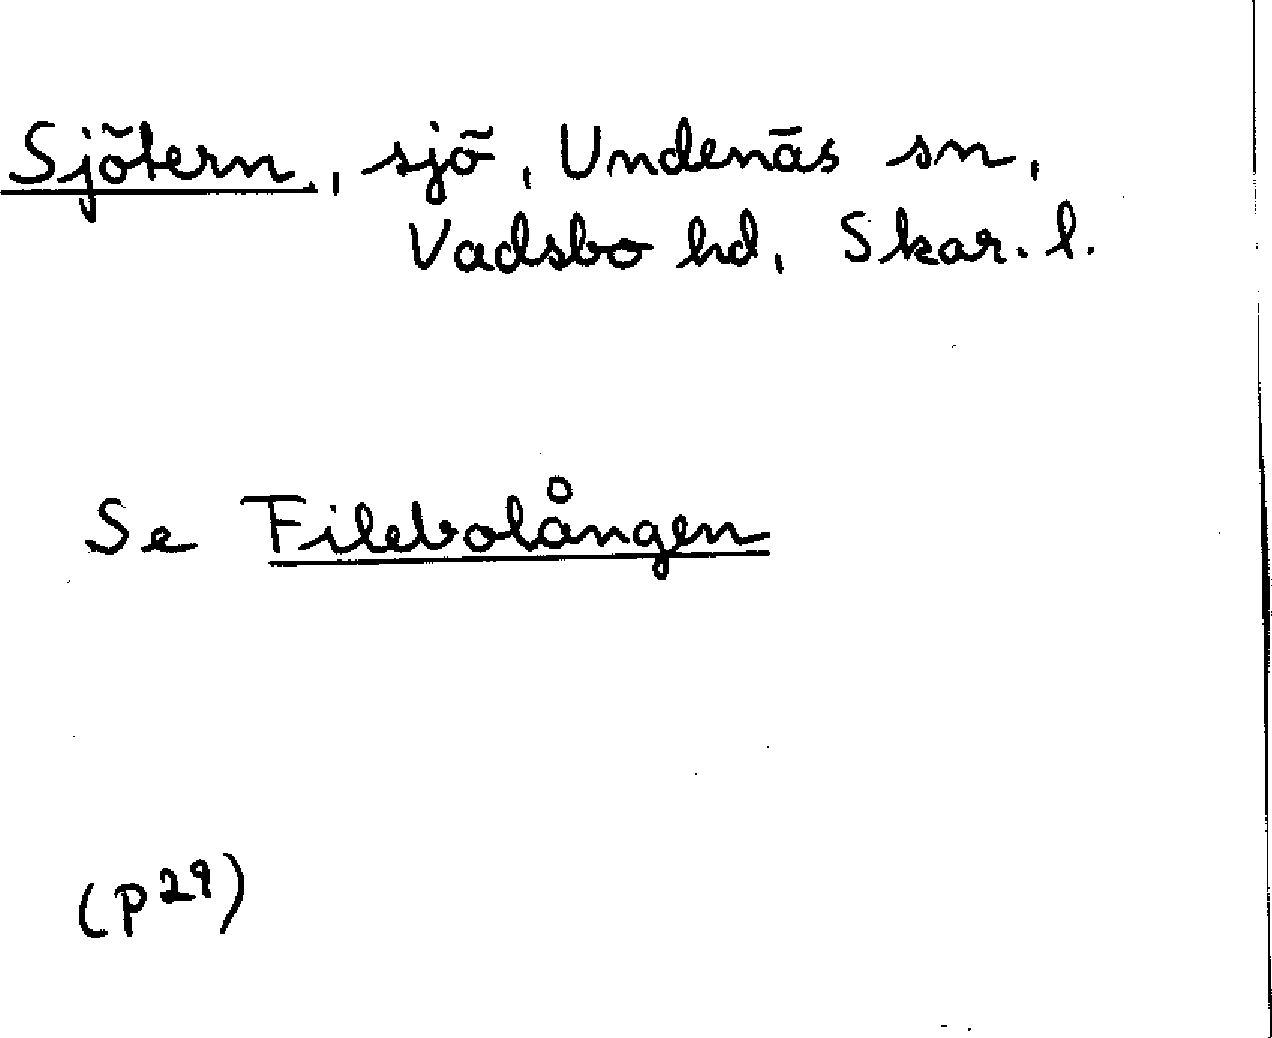 Sjötern, sjö, Undenäs sn,
Vadsbo hd, Skar. l.
Se Filebolången
(P29)